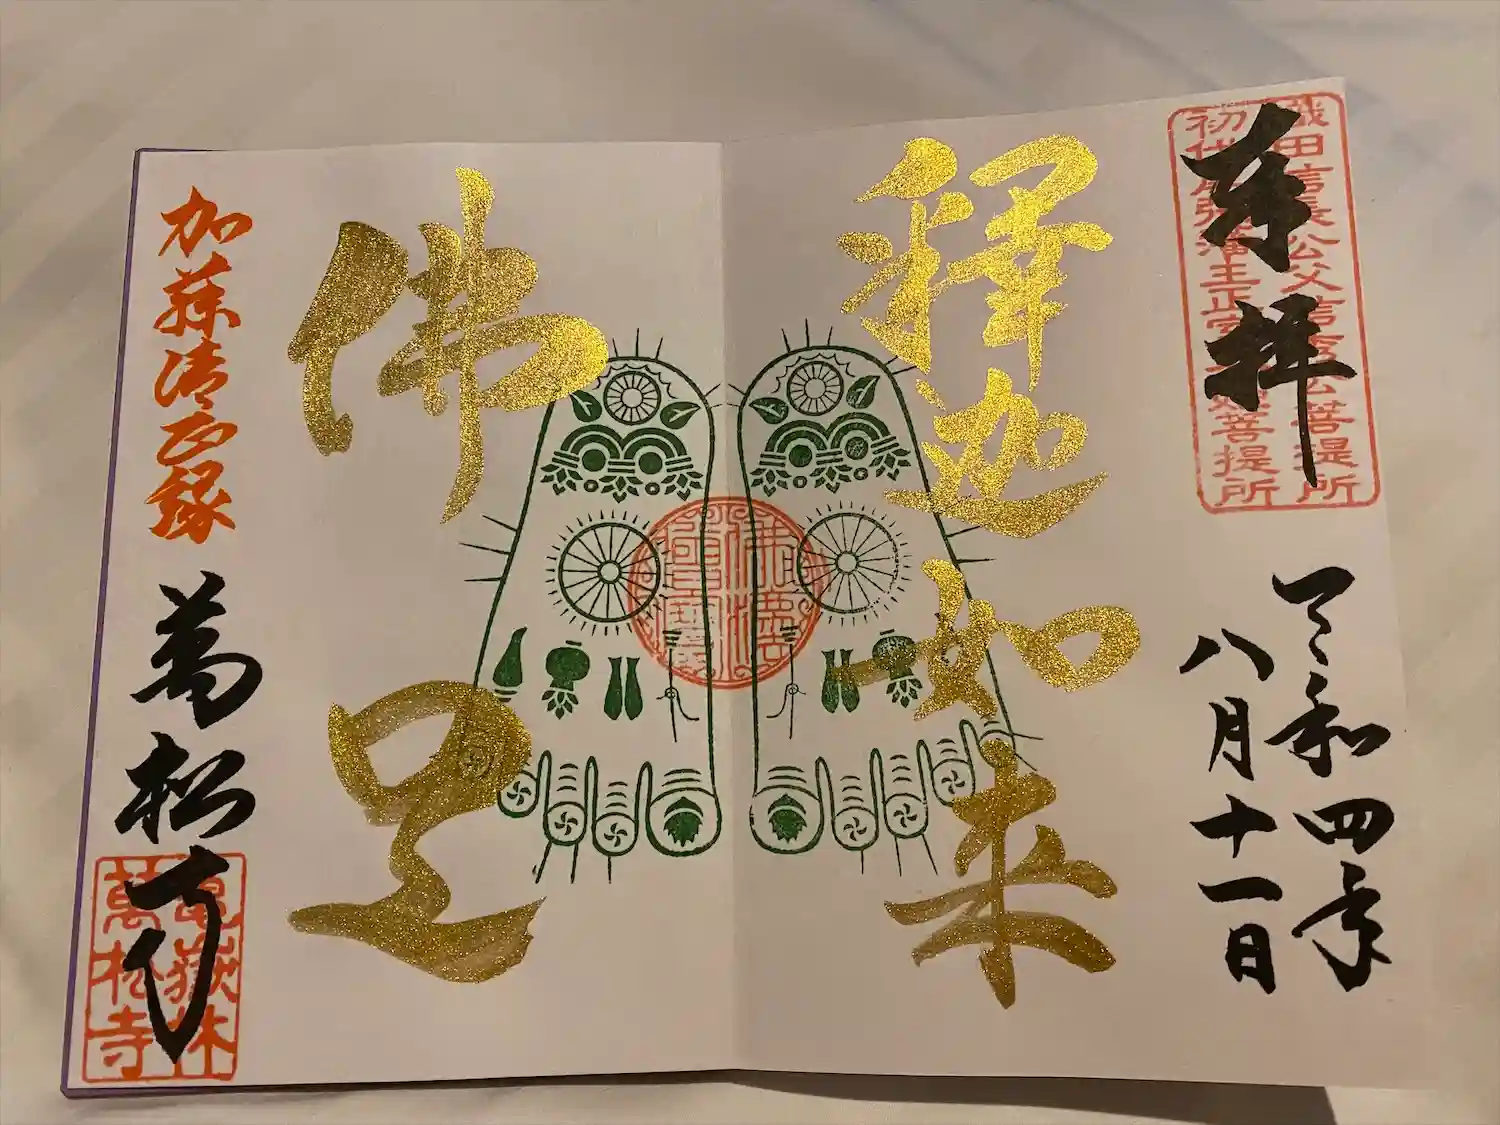 織田信長公父信秀公菩提所
初代尾張藩主正室菩提所
奉拝
令和四年
八月十一日
釋迦如来
佛足
加藤清正縁
萬松寺
亀嶽林
萬松寺